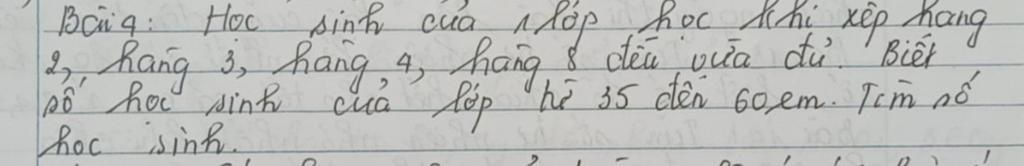 Bài 4: Học sinh của 1 lớp học khi xếp hàng
2, hàng 3, hàng 4, hàng 8 đều vừa đủ. Biết
số học sinh của lớp từ 35 đến 60 em. Tìm số
học sinh.